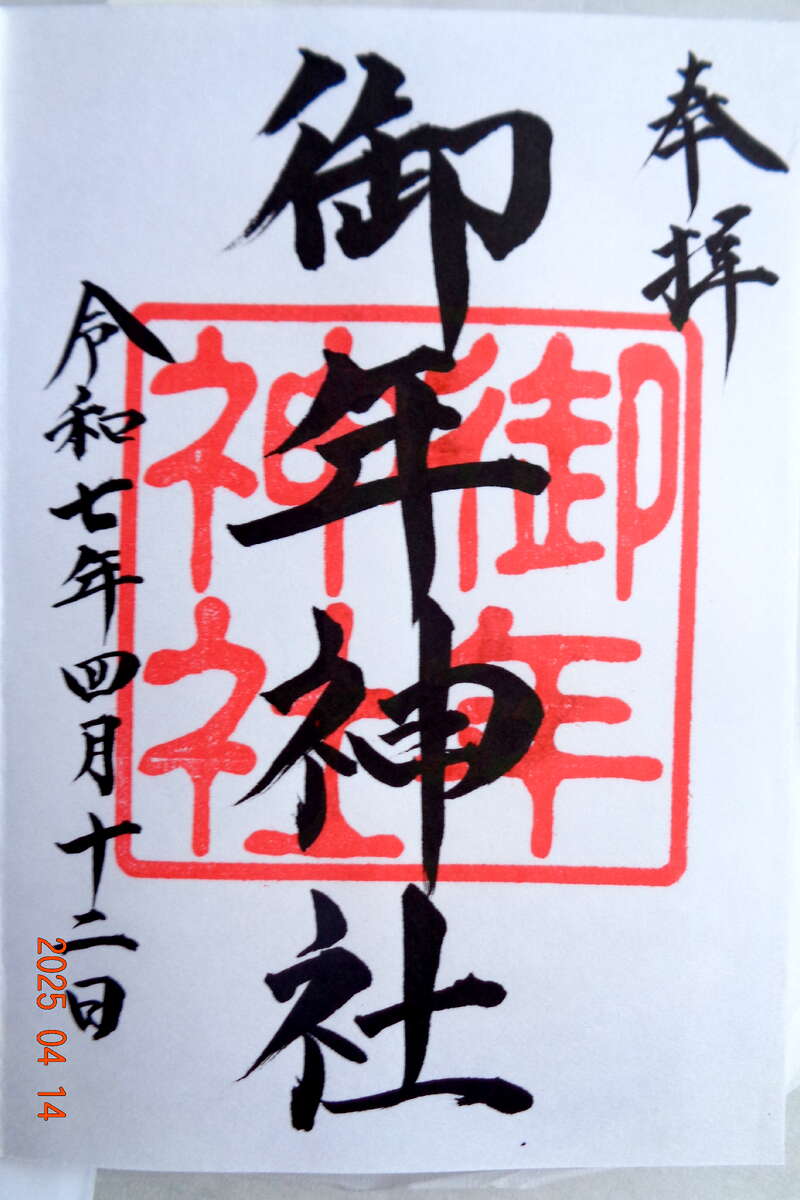 奉拝
御年神社
御年
神社
令和七年四月十二日
2025 04 14